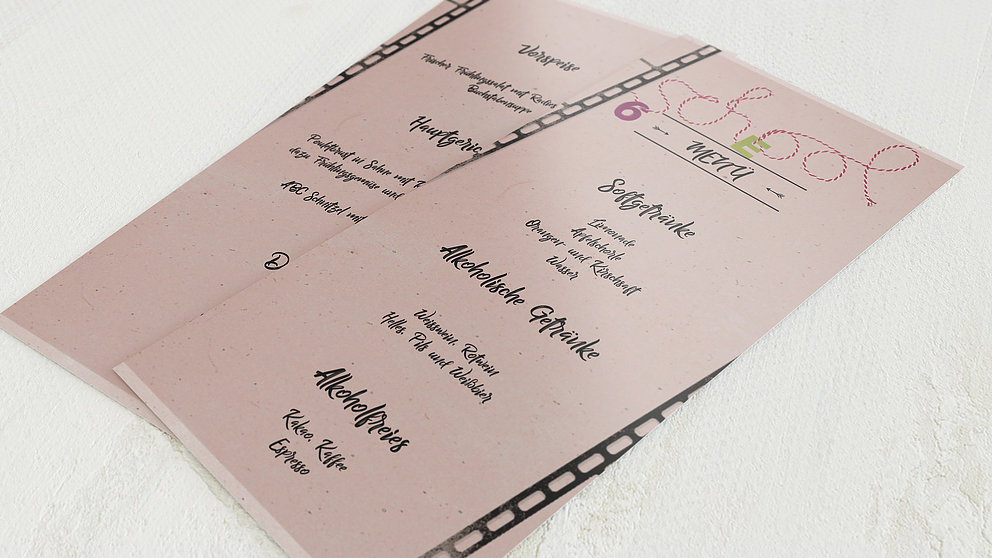 Vorspeise
Frischer Frühlingssalat mit Radies
Buchstabensuppe
Hauptgeric
Putenbrust in Sahne mit
dazu Frühlingsgemüse und
ABC Schnitzel mit
D
school
6
E
MENÜ
Softgetränke
Limonade
Apfelschorle
Orangen- und Kirschsaft
Wasser
Alkoholische Getränke
Weisswein, Rotwein
Helles, Pils und Weißbier
Alkoholfreies
Kakao, Kaffee
Espresso